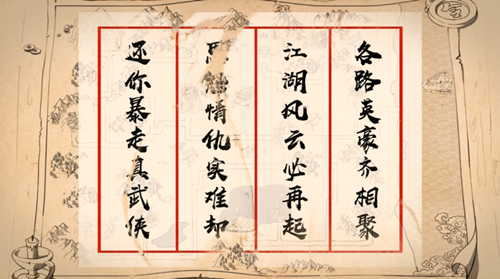 各路英豪齐相聚
江湖风云必再起
恩怨情仇实难却
还你暴走真武侠